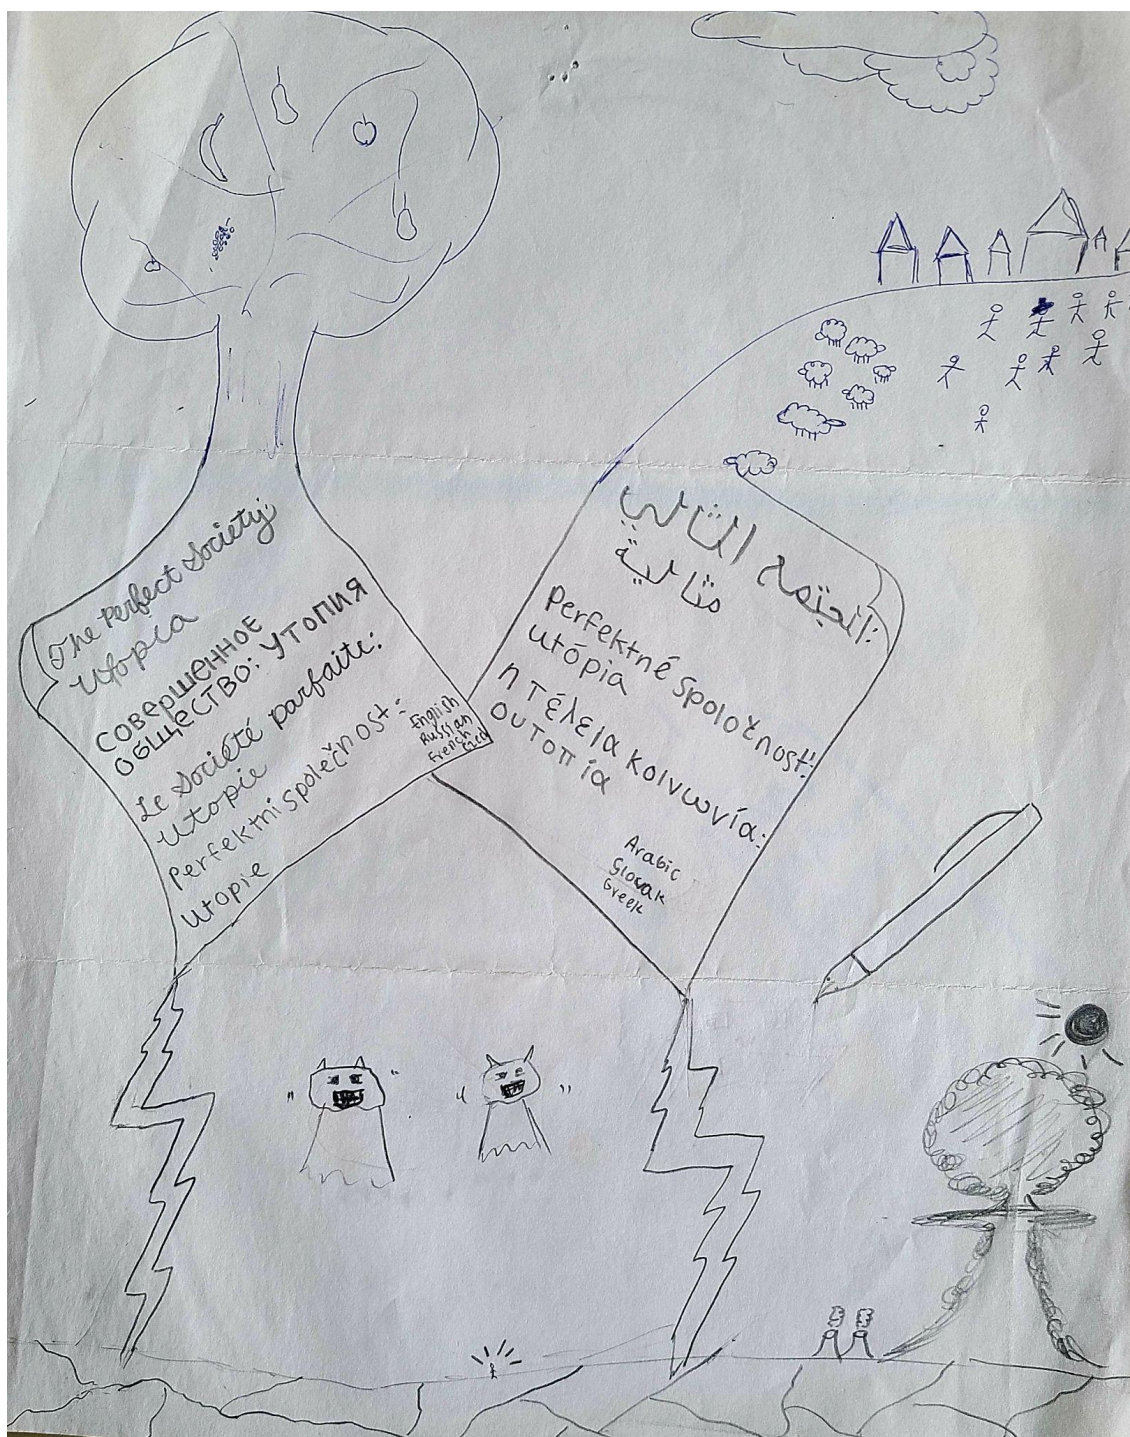 The Perfect Society:
Utopia
СОВЕРШЕННОЕ
ОБЩЕСТВО: УТОПИЯ
Le Société parfaite:
Utopie
Perfektni společnost:
Utopie
English
Russian
French
Czech
المثالي
مثالية
Perfektné spoločnosť:
utópia
η τέλεια κοινωνία:
ουτοπία
Arabic
Slovak
Greek